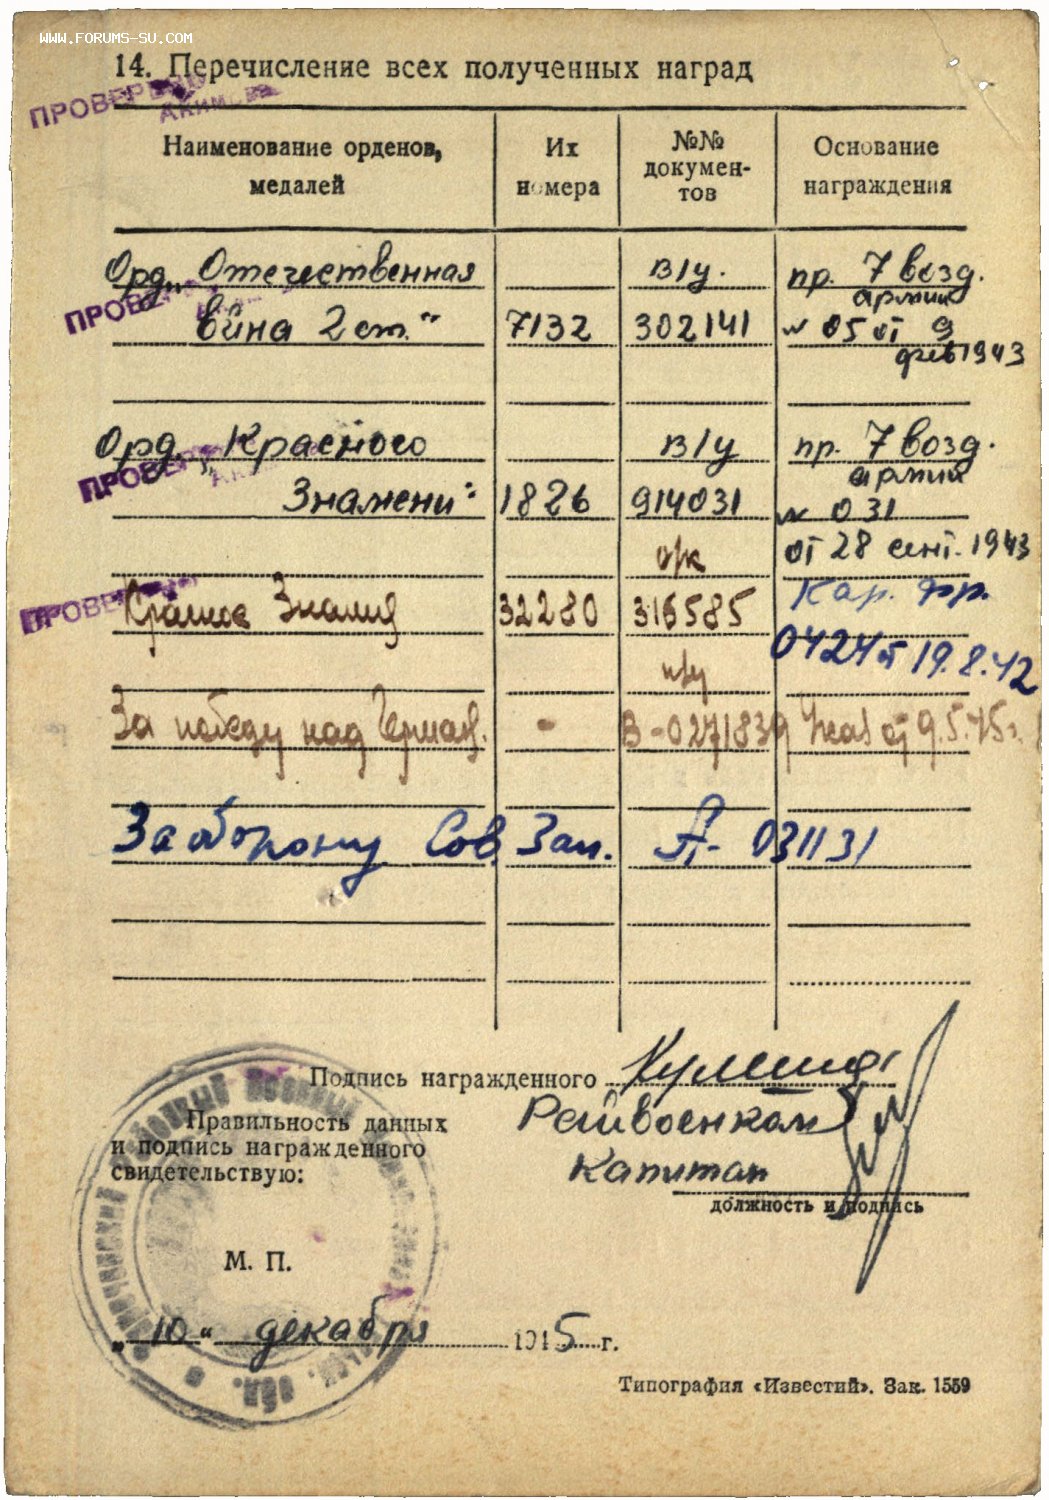 WWW.FORUMS-SU.COM
14. Перечисление всех полученных наград
ПРОВЕРЕНО
Наименование орденов, медалей
Их номера
№№ докумен-тов
Основание награждения
Орд. „Отечественная в/у. пр. 7 возд. армии
ПРОВЕРЕНО
Война 2 ст." 7132 302141 № 05 от 9 фев 1943
Орд. „Красного в/у пр. 7 возд. армии
ПРОВЕРЕНО
Знамени" 1826 914031 № 031
о/к от 28 сент. 1943
ПРОВЕРЕНО
Красное Знамя 32280 315585 Кар. фр.
0424 от 19.8.42
За победу над Герман. - В-0271839 Указ от 9.5.45 г.
За оборону Сов. Зап. А- 031131
Подпись награжденного
Правильность данных
и подпись награжденного
свидетельствую:
Райвоенком
Капитан
должность и подпись
М. П.
„ 10 " декабря 1945 г.
Типография «Известий». Зак. 1559